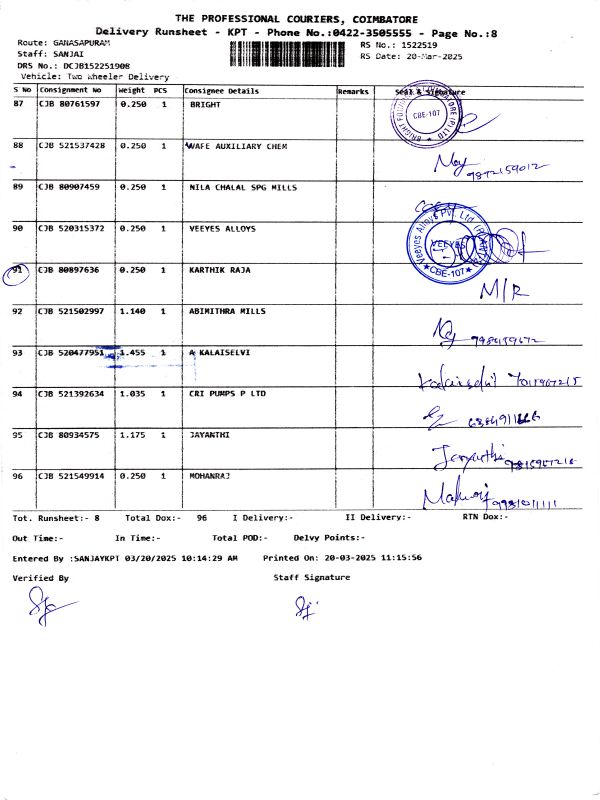 THE PROFESSIONAL COURIERS, COIMBATORE
Delivery Runsheet - KPT - Phone No.:0422-3505555 - Page No.:8
Route: GANASAPURAM
Staff: SANJAI
DRS No.: DCJB152251908
Vehicle: Two Wheeler Delivery
RS No.: 1522519
RS Date: 20-Mar-2025
S No Consignment No Weight PCS Consignee Details Remarks Seal & Signature
87 CJB 80761597 0.250 1 BRIGHT
CBE-107
88 CJB 521537428 0.250 1 WAFE AUXILIARY CHEM
9872159012
89 CJB 80907459 0.250 1 NILA CHALAL SPG MILLS
90 CJB 520315372 0.250 1 VEEYES ALLOYS
Veeyes Alloys Pvt. Ltd.
VEEYES
CBE-107
91 CJB 80897636 0.250 1 KARTHIK RAJA
M/R
92 CJB 521502997 1.140 1 ABIMITHRA MILLS
93 CJB 520477951 1.455 1 A KALAISELVI
94 CJB 521392634 1.035 1 CRI PUMPS P LTD
95 CJB 80934575 1.175 1 JAYANTHI
Jayanthi
96 CJB 521549914 0.250 1 MOHANRAJ
Tot. Runsheet:- 8 Total Dox:- 96 I Delivery:- II Delivery:- RTN Dox:-
Out Time:- In Time:- Total POD:- Delvy Points:-
Entered By :SANJAYKPT 03/20/2025 10:14:29 AM Printed On: 20-03-2025 11:15:56
Verified By Staff Signature